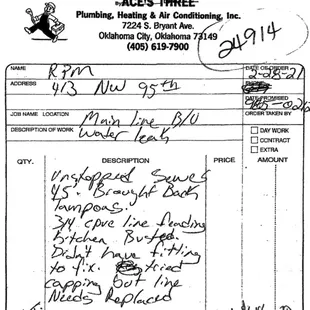 ACE'S THREE
Plumbing, Heating & Air Conditioning, Inc.
7224 S. Bryant Ave.
Oklahoma City, Oklahoma 73149
(405) 619-7900
24914
NAME RPM DATE OF ORDER 2-28-21
ADDRESS 413 NW 95th PHONE
DATE PROMISED
JOB NAME LOCATION Main line B/U ORDER TAKEN BY
DESCRIPTION OF WORK water leak
DAY WORK
CONTRACT
EXTRA
QTY. DESCRIPTION PRICE AMOUNT
Unstopped Sewer
45'. Brought Back
Tampons.
3/4 cpvc line feeding
kitchen Busted.
Didn't have fitting
to fix. tried
capping but line
Needs Replaced